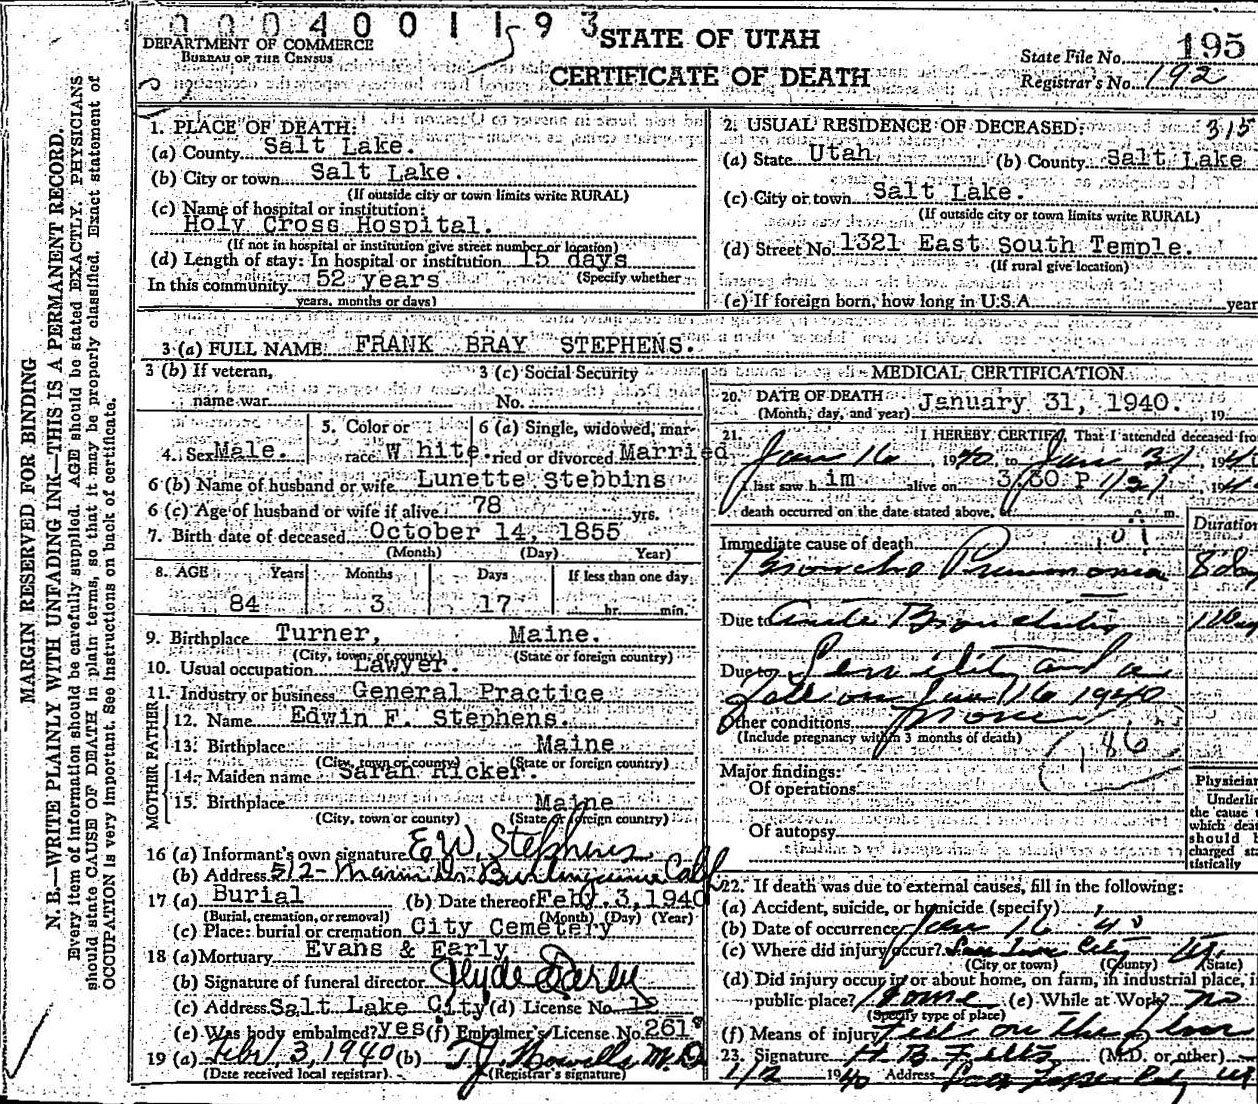 0004001193
DEPARTMENT OF COMMERCE
BUREAU OF THE CENSUS
STATE OF UTAH
CERTIFICATE OF DEATH
State File No. 195
Registrar's No. 192
MARGIN RESERVED FOR BINDING
N. B.—WRITE PLAINLY WITH UNFADING INK—THIS IS A PERMANENT RECORD.
Every item of information should be carefully supplied. AGE should be stated EXACTLY. PHYSICIANS
should state CAUSE OF DEATH in plain terms, so that it may be properly classified. Exact statement of
OCCUPATION is very important. See instructions on back of certificate.
1. PLACE OF DEATH:
(a) County Salt Lake.
(b) City or town Salt Lake.
(If outside city or town limits write RURAL)
(c) Name of hospital or institution:
Holy Cross Hospital.
(If not in hospital or institution give street number or location)
(d) Length of stay: In hospital or institution 15 days
(Specify whether
In this community 52 years
years, months or days)
2. USUAL RESIDENCE OF DECEASED: 315
(a) State Utah (b) County Salt Lake
(c) City or town Salt Lake.
(If outside city or town limits write RURAL)
(d) Street No. 1321 East South Temple.
(If rural give location)
(e) If foreign born, how long in U.S.A. year
3 (a) FULL NAME FRANK BRAY STEPHENS.
3 (b) If veteran,
name war
3 (c) Social Security
No.
4. Sex Male.
5. Color or
race White.
6 (a) Single, widowed, mar-
ried or divorced Married
6 (b) Name of husband or wife Lunette Stebbins
6 (c) Age of husband or wife if alive 78 yrs.
7. Birth date of deceased October 14, 1855
(Month) (Day) Year)
8. AGE Years Months Days If less than one day
84 3 17 hr. min.
9. Birthplace Turner, Maine.
(City, town, or county) (State or foreign country)
10. Usual occupation Lawyer.
11. Industry or business General Practice
FATHER
12. Name Edwin F. Stephens.
13. Birthplace Maine
(City, town or county) (State or foreign country)
MOTHER
14. Maiden name Sarah Ricker.
15. Birthplace Maine
(City, town or county) (State or foreign country)
16 (a) Informant's own signature E W. Stephens
(b) Address 512- Marin Dr. Burlingame Calf
17 (a) Burial (b) Date thereof Feby. 3, 1940
(Burial, cremation, or removal) (Month) (Day) (Year)
(c) Place: burial or cremation City Cemetery
18 (a) Mortuary Evans & Early
(b) Signature of funeral director Clyde Early
(c) Address Salt Lake City (d) License No. 12
(e) Was body embalmed? yes (f) Embalmer's License No. 261
19 (a) Febr 3, 1940 (b) T.J. Howells M.D
(Date received local registrar) (Registrar's signature)
MEDICAL CERTIFICATION
20. DATE OF DEATH January 31, 1940. 19
(Month, day, and year)
21. I HEREBY CERTIFY, That I attended deceased fro
Jan 16, 1940 to Jan 31, 194
I last saw h im alive on 3:30 P 1/31, 194
death occurred on the date stated above, at m.
Duration
Immediate cause of death 107
Broncho Pneumonia 8 da
Due to Acute Bronchitis
Due to Senility and a
fall on Jan 16 1940
Other conditions None
(Include pregnancy within 3 months of death)
186
Major findings:
Of operations
Of autopsy
Physician
Underlin
the cause
which dea
should
charged sta
tistically
22. If death was due to external causes, fill in the following:
(a) Accident, suicide, or homicide (specify)
(b) Date of occurrence Jan 16 40
(c) Where did injury occur? Salt Lake City Ut.
(City or town) (County) (State)
(d) Did injury occur in or about home, on farm, in industrial place, i
public place? Home (e) While at Work? no
(Specify type of place)
(f) Means of injury Fell on the floor
23. Signature H. B. Felts (M.D. or other)
1/2 1940 Address Salt Lake City Ut